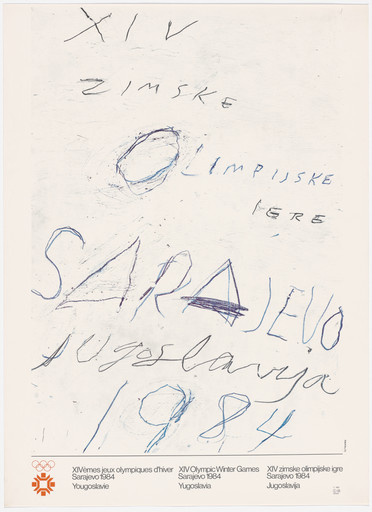 XIV
ZIMSKE
OLIMPIJSKE
IGRE
SARAJEVO
Jugoslavija
1984
XIVèmes jeux olympiques d'hiver
Sarajevo 1984
Yougoslavie
XIV Olympic Winter Games
Sarajevo 1984
Yugoslavia
XIV zimske olimpijske igre
Sarajevo 1984
Jugoslavija